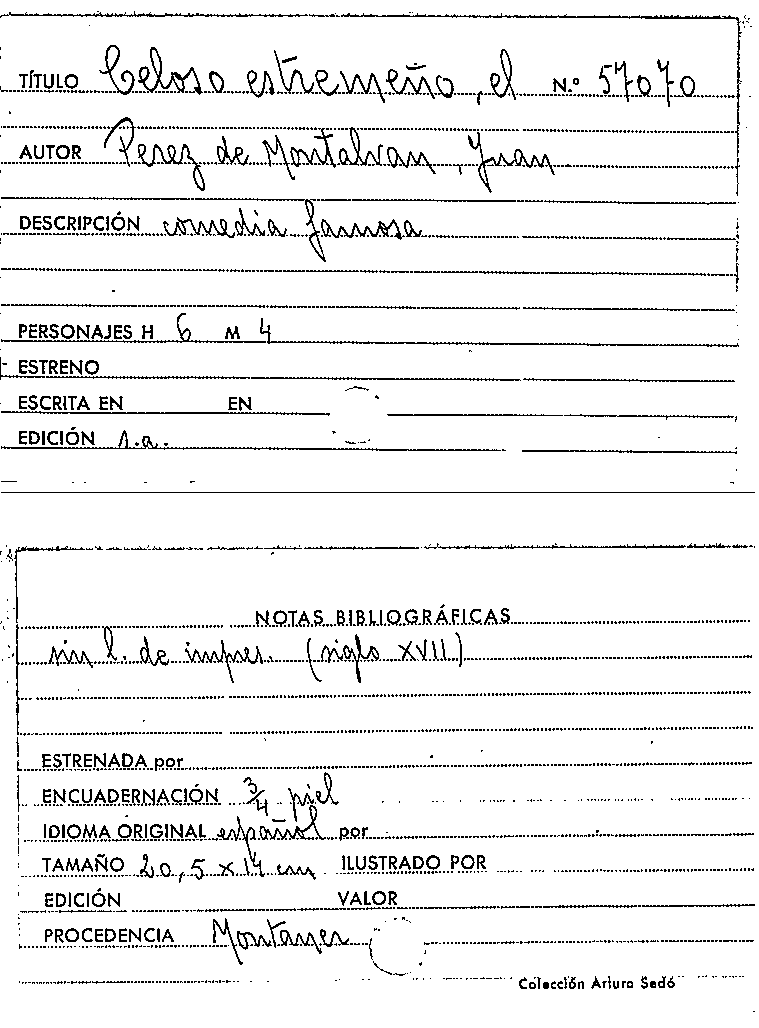 TÍTULO Celoso estremeño, el N.º 57070
AUTOR Perez de Montalvan, Juan
DESCRIPCIÓN comedia famosa
PERSONAJES H 6 M 4
ESTRENO
ESCRITA EN EN
EDICIÓN s.a.
NOTAS BIBLIOGRÁFICAS
sin l. de impres. (siglo XVII)
ESTRENADA por
ENCUADERNACIÓN 3/4 piel
IDIOMA ORIGINAL español por
TAMAÑO 20,5 x 14 cm ILUSTRADO POR
EDICIÓN VALOR
PROCEDENCIA Montaner
Colección Arturo Sedó